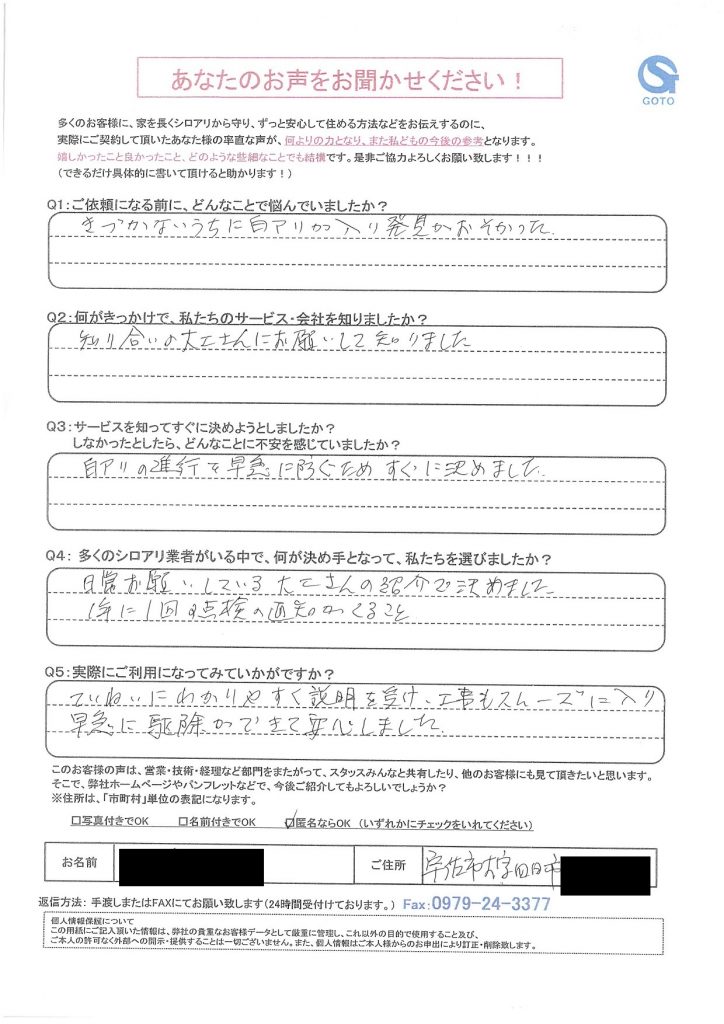 あなたのお声をお聞かせください！
GOTO
多くのお客様に、家を長くシロアリから守り、ずっと安心して住める方法などをお伝えするのに、
実際にご契約して頂いたあなた様の率直な声が、何よりの力となり、また私どもの今後の参考となります。
嬉しかったこと良かったこと、どのような些細なことでも結構です。是非ご協力よろしくお願い致します！！！
（できるだけ具体的に書いて頂けると助かります！）
Q1：ご依頼になる前に、どんなことで悩んでいましたか？
きづかないうちに白アリが入り発見がおそかった。
Q2：何がきっかけで、私たちのサービス・会社を知りましたか？
知り合いの大工さんにお願いして知りました
Q3：サービスを知ってすぐに決めようとしましたか？
しなかったとしたら、どんなことに不安を感じていましたか？
白アリの進行を早急に防ぐため すぐに決めました。
Q4： 多くのシロアリ業者がいる中で、何が決め手となって、私たちを選びましたか？
日常お願いしている大工さんの紹介で決めました。
1年に1回の点検の通知がくること
Q5：実際にご利用になってみていかがですか？
ていねいにわかりやすく説明を受け、工事もスムーズに入り
早急に駆除ができて安心しました。
このお客様の声は、営業・技術・経理など部門をまたがって、スタッスみんなと共有したり、他のお客様にも見て頂きたいと思います。
そこで、弊社ホームページやパンフレットなどで、今後ご紹介してもよろしいでしょうか？
※住所は、「市町村」単位の表記になります。
□写真付きでOK □名前付きでOK ☑匿名ならOK （いずれかにチェックをいれてください）
お名前 ご住所 宇佐市大字四日市
返信方法： 手渡しまたはFAXにてお願い致します（24時間受付けております。） Fax：0979-24-3377
個人情報保護について
この用紙にご記入頂いた情報は、弊社の貴重なお客様データとして厳重に管理し、これ以外の目的で使用すること及び、
ご本人の許可なく外部への開示・提供することは一切ございません。また、個人情報はご本人様からのお申出により訂正・削除致します。